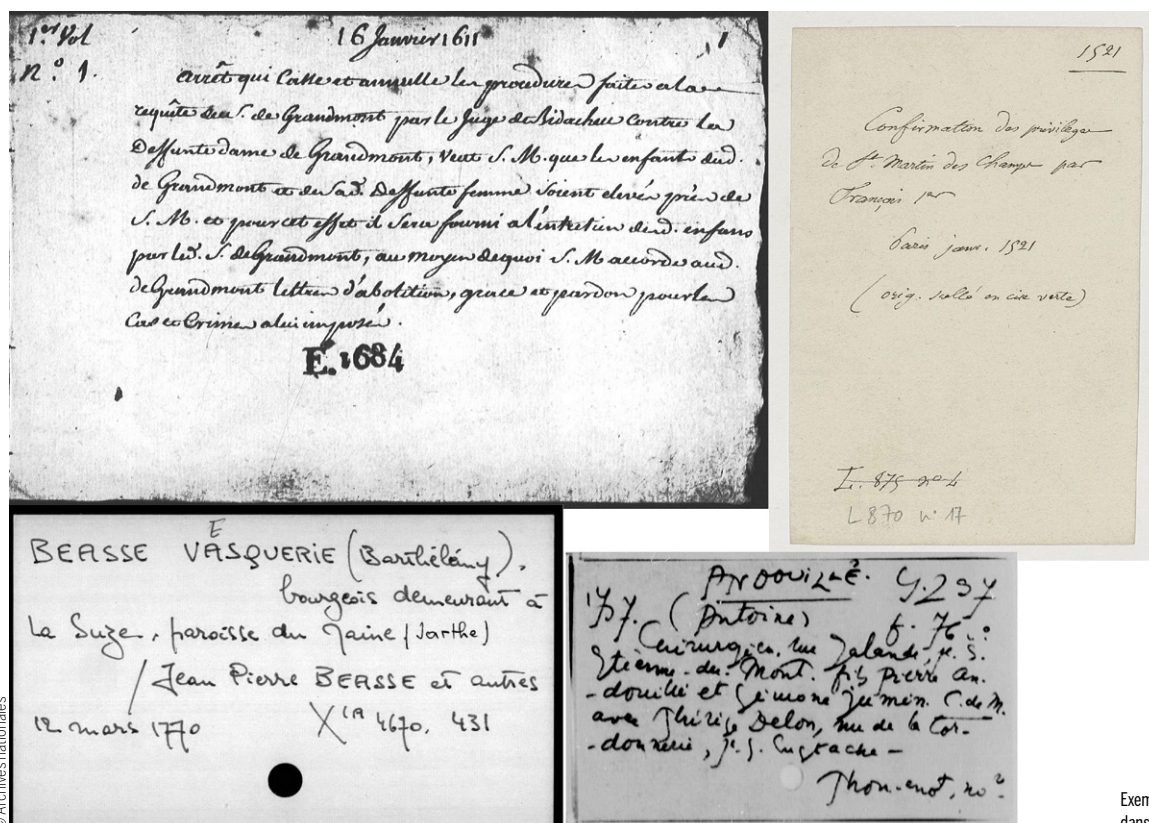 1er Vol
16 Janvier 1611
1
N.o 1.
arrêt qui Casse et annulle les procedures faites a la
requête des S. de Grandmont par le Juge de Bidache Contre la
Deffunte dame de Grandmont, Veut S. M. que les enfants dud.
de Grandmont et de sad. Deffunte femme soient elevés près de
S. M. et pour cet effet il sera fourni a l'entretien desd. enfans
par led. S. de Grandmont, au moyen dequoi S. M accorde aud.
de Grandmont lettres d'abolition, grace et pardon pour les
Cas et Crimes a lui imposés.
E. 1684
1521
Confirmation des privileges
de St Martin des Champs par
François 1er
Paris janv. 1521
(orig. scellé en cire verte)
L. 875 no 4
L 870 n° 17
E
BEASSE VASQUERIE (Barthélémy).
bourgeois demeurant à
La Suze, paroisse du Maine (Sarthe)
/ Jean Pierre BEASSE et autres
12 mars 1770 X 1A 4670. 431
ANDOUILLÉ. Y.237
(Antoine) f. 76
Chirurgien, rue Jalande, p. S.
Etienne-du-Mont. fils Pierre An-
-douillé et Simone Jumin. C. de M.
avec Thérèse Delon, rue de la Cor-
-donnerie, p. S. Eustache –
© Archives nationales
Exem
dans